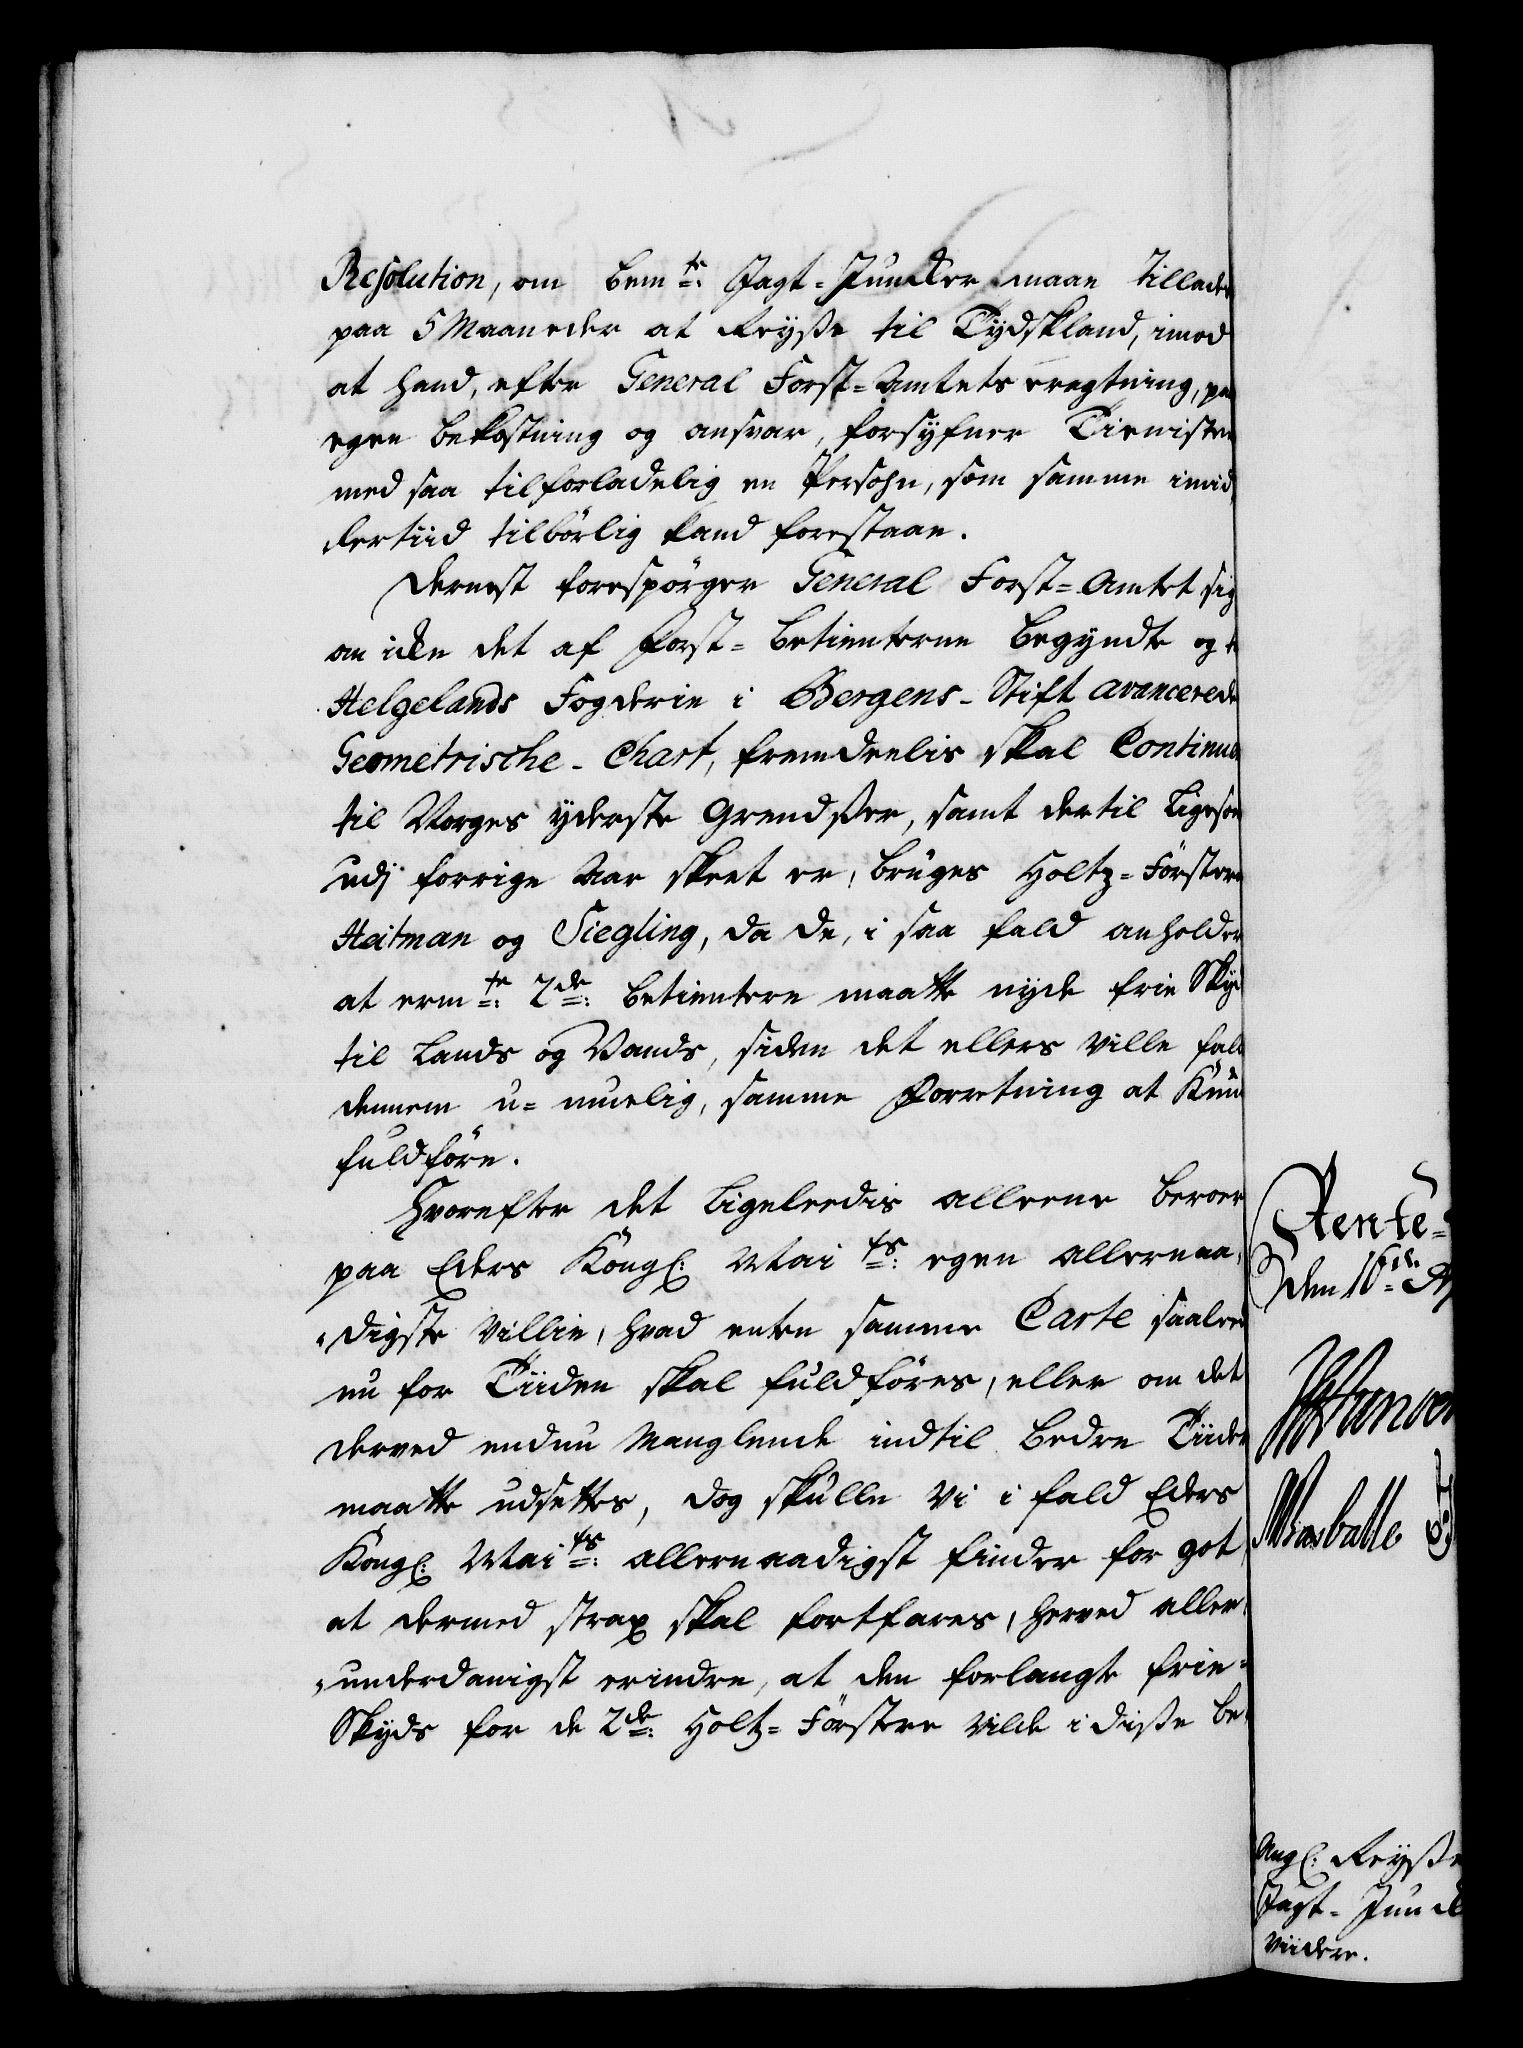 Resolution, om bem:te Jagt-Juncker maae tillades
paa 5 Maaneder at Reyse til Tydskland, imod
at hand, efter General Forst-Amtets eragtning, paa
egen bekostning og ansvar, forsyfner Tienisten
med saa tilforladelig en Persohn, som samme imid
lertiid tilbörlig kand forestaae.
Dernest forespörger General Forst-Amtet sig
om icke det af Forst-betienterne begyndte og
Helgelands Fogderie i Bergens-Stift avancerede
Geometrische-Chart, fremdeelis skal Continue
til Norges yderste Grendser, samt dertil ligesom
udj forrige Aar skeet er, bruges Holtz-Förstere
Heitman og Siegling, da de, i saa fald anholder
at erm:te 2de: betientere maatte nyde frie Skyds
til Lands og Vands, siden det ellers ville falde
dennem u-muelig, samme Forretning at kunde
fuldföre.
Hvorefter det ligeleedis alleene beroer
paa Eders Kongl: Mai:ts egen allernaa-
digste villie, hvad enten samme Carte saaledes
nu for Tiiden skal fuldföres, eller om det
derved endnu Manglende indtil bedre Tiider
maatte udsettes, dog skulle vi i fald Eders
Kongl: Mai:ts allernaadigst finder for got,
at dermed strax skal fortfares, herved aller-
underdanigst erindre, at den forlangte frie-
Skyds for de 2de: Holtz-Förstere vilde i disse be-
Rente=
den 16de
Angl: Reyse
Jagt-Junck
viidere.